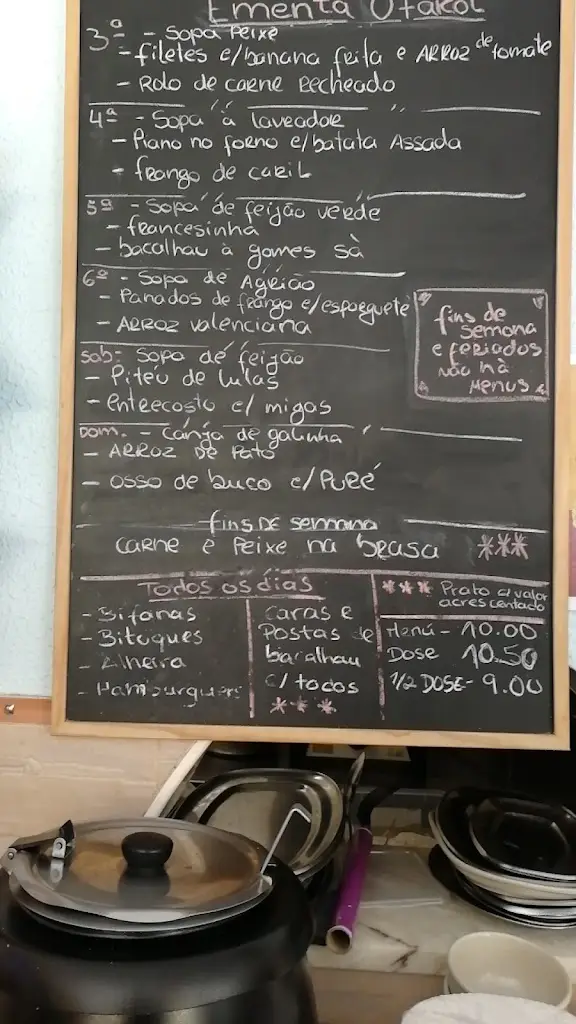 Ementa
3ª - Sopa Peixe
- filetes c/banana frita e ARROZ de tomate
- Rolo de carne Recheado
4ª - Sopa à lavrador
- Piano no forno c/batata Assada
- frango de caril
5ª - Sopa de feijão verde
- francesinha
- bacalhau à gomes sà
6ª - Sopa de Agrião
- Panados de frango c/esparguete
- ARROZ valenciana
fins de
semana
e feriados
não hà
Menus
Sab: Sopa de feijão
- Pitéu de lulas
- entrecosto c/ migas
Dom. - Canja de galinha
- ARROZ DE Pato
- osso de buco c/Puré
fins DE semana
Carne e Peixe na brasa ***
Todos os dias
- Bifanas
- Bitoques
- Alheira
- Hamburguers
Caras e
Postas de
bacalhau
c/ todos
***
*** Prato c/ valor
acrescentado
Menú - 10.00
Dose 10.50
1/2 DOSE - 9.00